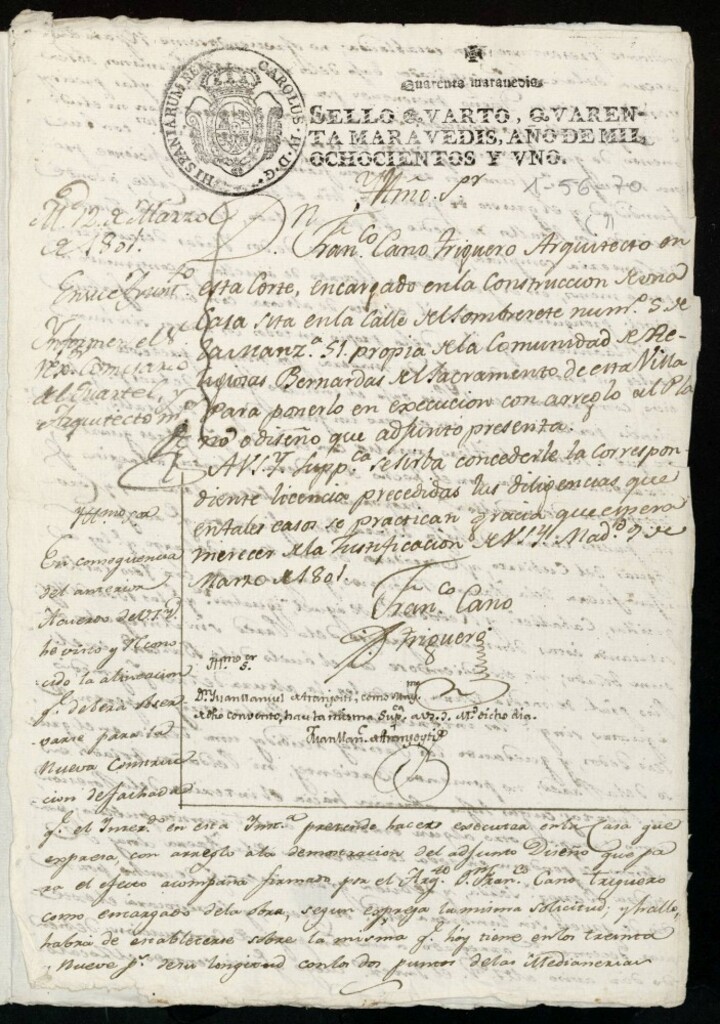 HISPANIARUM REX CAROLUS IV D G
Quarenta maravedis
SELLO QVARTO, QVAREN-
TA MARAVEDIS, AÑO DE MIL
OCHOCIENTOS Y VNO.
Yllmo. Sr
1-56-70
M.d 12 de Marzo
de 1801.
Informen el Sr
Comisario
del Quartel, y
Arquitecto mr
D.n Fran.co Cano Triguero Arquitecto en
esta Corte, encargado en la Construccion de una
Casa sita en la Calle del Sombrerete num.o 5 de
la Manz.a 51. propia de la Comunidad de Re-
ligiosas Bernardas del Sacramento de esta Villa
Para ponerlo en execucion con arreglo al Pla
no o diseño que adjunto presenta.
A V.S.Y. Supp.ca se sirba concederle la correspon
diente licencia precedidas las diligencias que
en tales casos se practican gracia que espera
merecer de la Justificacion de V.S.Y. Mad.d 9 de
Marzo de 1801.
Fran.co Cano
Triguero
Yllmo Sor
En consequencia
del anterior
Acuerdo de V.S.Y.
he visto y recono
cido la alineacion
q.e debera obser
varse para la
Nueva Construc
cion de fachada
Yllmo Sor
D.n Juan Manuel de Aranjoiti, como
de dho convento, hace la misma Sup.ca a V.S.Y. M.d dicho dia.
Juan Man.l de Aranjoyti
q.e el Interdo en esta Inst.a pretende hacer executar en la Casa que
expresa, con arreglo a la demostracion del adjunto Diseño que pa
ra el efecto acompaña firmado por el Arq.to D.n Fran.co Cano Triguero
como encargado de la obra, segun expresa la misma solicitud; y hallo,
habra de establecerse sobre la misma q.e hoy tiene en los treinta
y Nueve p.s de su longitud con los dos puntos de las Medianerias